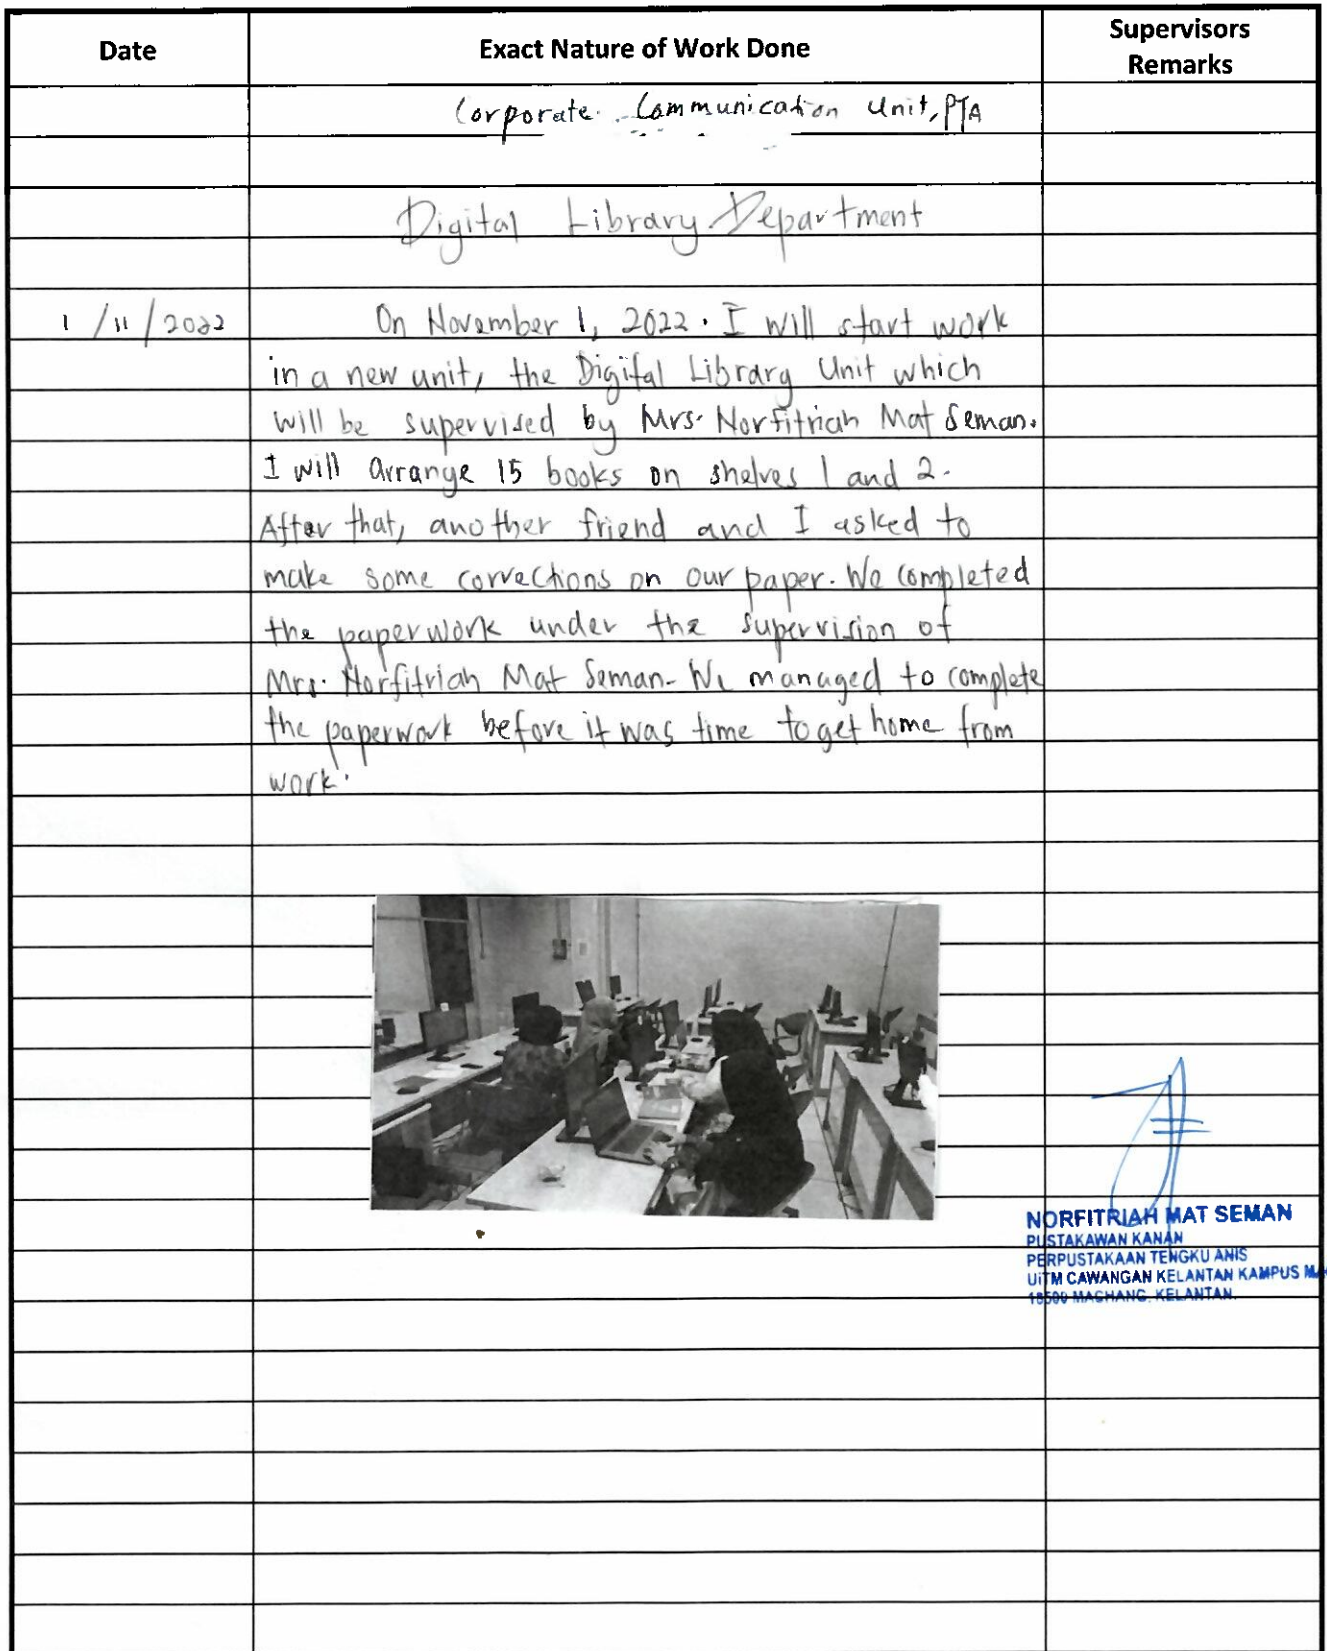 Date
Exact Nature of Work Done
Supervisors
Remarks
Corporate Communication Unit, PTA
Digital Library Department
1/11/2022
On November 1, 2022. I will start work
in a new unit, the Digital Library Unit which
will be supervised by Mrs. Norfitriah Mat Seman.
I will arrange 15 books on shelves 1 and 2.
After that, another friend and I asked to
make some corrections on our paper. We completed
the paperwork under the supervision of
Mrs. Norfitriah Mat Seman. We managed to complete
the paperwork before it was time to get home from
work.
NORFITRIAH MAT SEMAN
PUSTAKAWAN KANAN
PERPUSTAKAAN TENGKU ANIS
UiTM CAWANGAN KELANTAN KAMPUS
18500 MACHANG, KELANTAN.